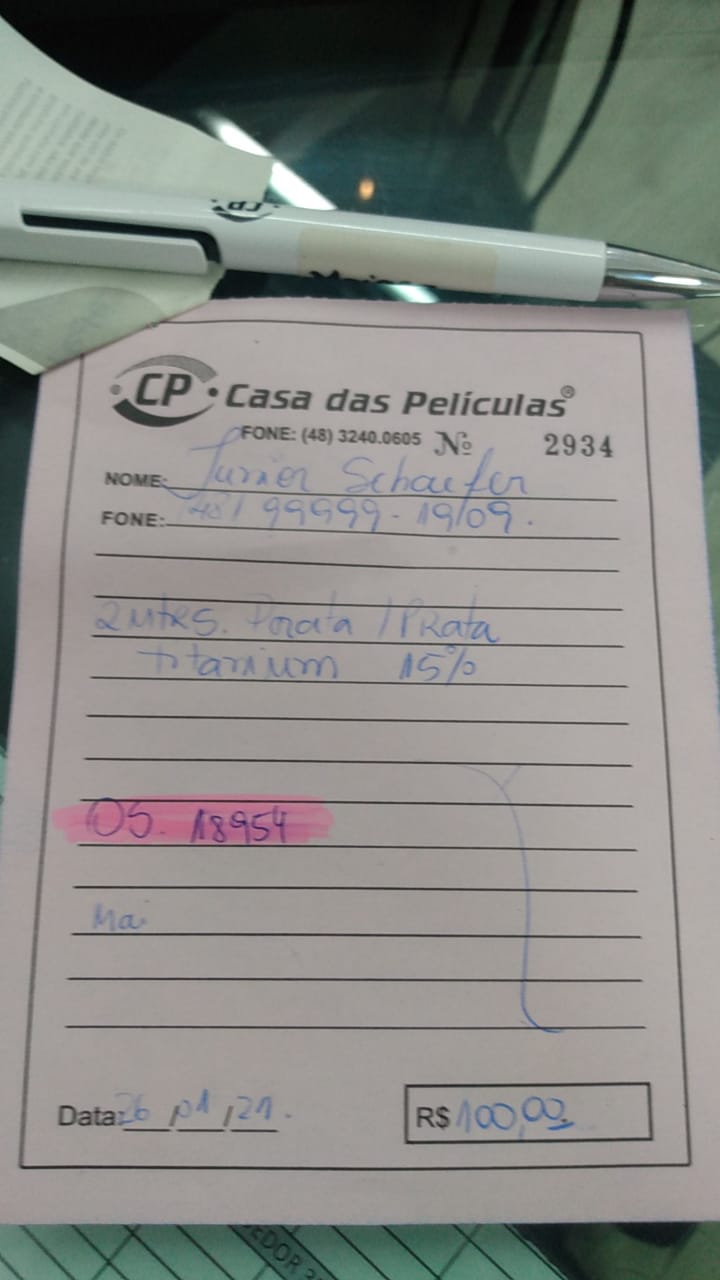 CP Casa das Películas®
FONE: (48) 3240.0605 Nº 2934
NOME: Junior Schaefer
FONE: (48) 99999-1909.
2 Mtrs. Prata / PRata
titanium 15%
OS. 18954
Mai
Data: 26/01/21.
R$ 100,00